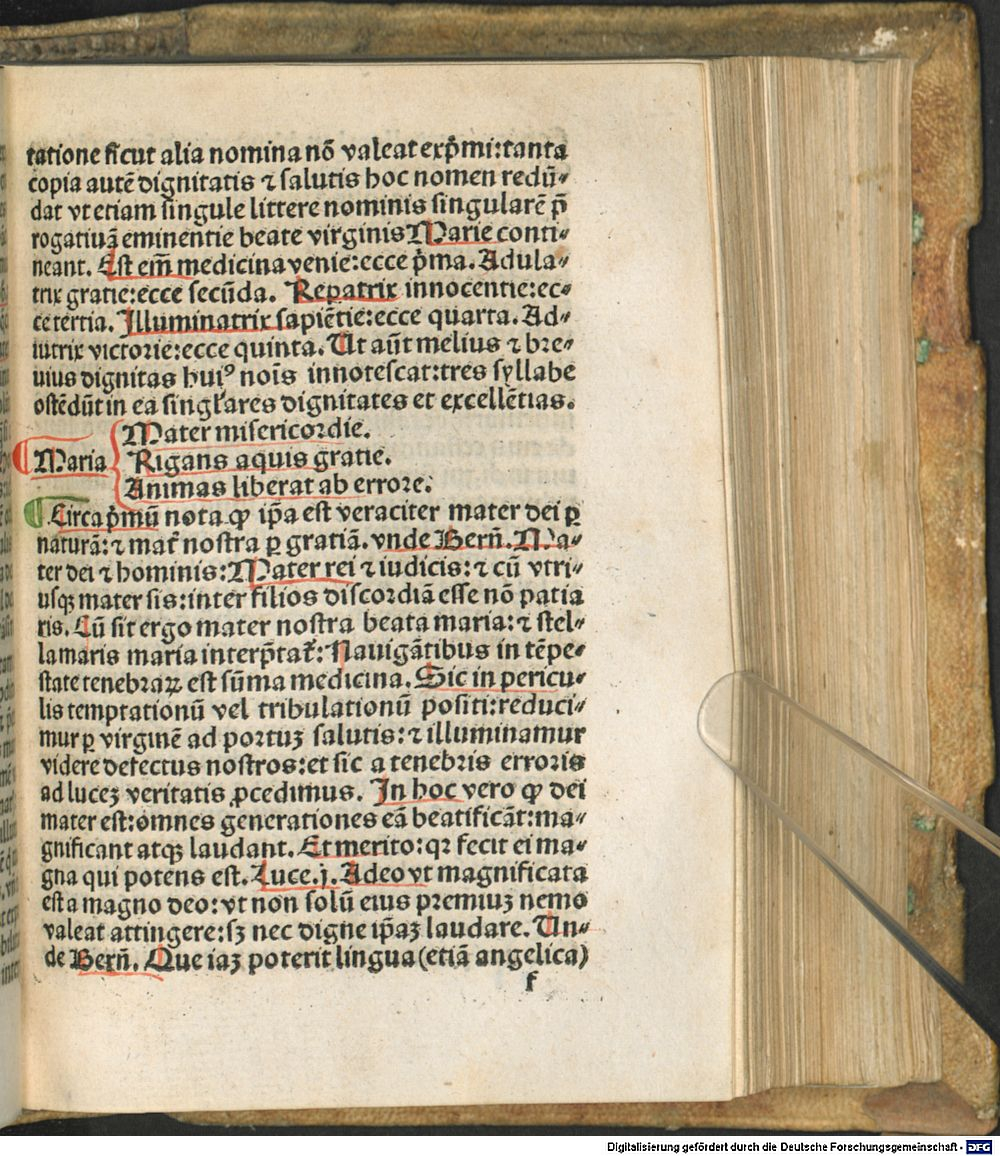 tatione sicut alia nomina nō valeat exp̄mi: tanta
copia autē dignitatis ⁊ salutis hoc nomen redū⸗
dat vt etiam singule littere nominis singularē p̄
rogatiuā eminentie beate virginis Marie conti⸗
neant. Est em̄ medicina venie: ecce p̄ma. Adula⸗
trix gratie: ecce secūda. Repatrix innocentie: ec⸗
ce tertia. Illuminatrix sapiētie: ecce quarta. Ad⸗
iutrix victorie: ecce quinta. Ut aūt melius ⁊ bre⸗
uius dignitas huiꝰ nois̄ innotescat: tres syllabe
ostēdūt in ea singl'ares dignitates et excellētias.
Mater misericordie.
Maria Rigans aquis gratie.
Animas liberat ab errore.
Circa p̄mū nota ꝙ ip̄a est veraciter mater dei ꝑ
naturā: ⁊ mat̄ nostra ꝑ gratiā. vnde Bern̄. Ma⸗
ter dei ⁊ hominis: Mater rei ⁊ iudicis: ⁊ cū vtri⸗
usqꝫ mater sis: inter filios discordiā esse nō patia
ris. Cū sit ergo mater nostra beata maria: ⁊ stel⸗
la maris maria interp̄tat̄: Nauigātibus in tēpe⸗
state tenebraꝝ est sūma medicina. Sic in pericu⸗
lis temptationū vel tribulationū positi: reduci⸗
mur ꝑ virginē ad portuꝫ salutis: ⁊ illuminamur
videre defectus nostros: et sic a tenebris erroris
ad luceꝫ veritatis ꝓcedimus. In hoc vero ꝙ dei
mater est: omnes generationes eā beatificāt: ma⸗
gnificant atqꝫ laudant. Et merito: qꝛ fecit ei ma⸗
gna qui potens est. Luce.j. Adeo vt magnificata
est a magno deo: vt non solū eius premiuꝫ nemo
valeat attingere: sꝫ nec digne ip̄aꝫ laudare. Un⸗
de Bern̄. Que iaꝫ poterit lingua (etiā angelica)
f
Digitalisierung gefördert durch die Deutsche Forschungsgemeinschaft - DFG